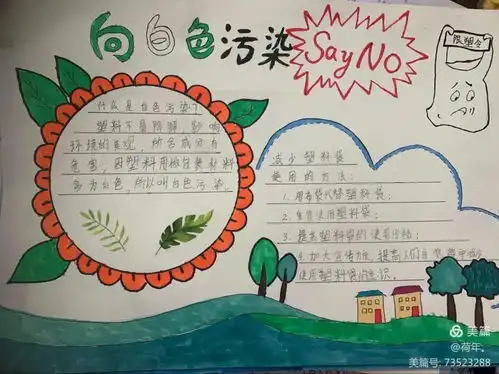 向白色污染
Say No
限塑令
什么是白色污染？
塑料不易降解，影响
环境的美观，所含成分有
危害，因塑料用做包装材料
多为白色，所以叫白色污染。
减少塑料袋
使用的方法：
1. 用布袋代替塑料袋；
2. 重复使用塑料袋；
3. 提高塑料袋的使用价格；
4. 加大宣传力度，提高人们自觉
使用塑料袋的意识。
美篇
@荷年。
美篇号: 73523288